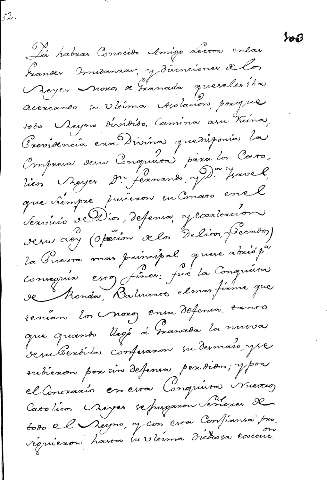 52.
103
Ya habras Conocido Amigo lector en las
Grandes mudanzas, y divisiones de los
Reyes Moros de Granada que se les iba
acercando su Ultima Asolacion, porque
todo Reyno dividido, Camina a su ruina,
Providencia era Divina que disponia la
Empresa de su Conquista para los Cato-
licos Reyes Dn. Fernando, y Da. Isavel,
que siempre pusieron su Conato en el
Servicio de Dios, defensa, y exaltacion
de su Ley (Opinion de los
la Puerta mas principal que se abrió pa.
conseguir estos fines fue la Conquista
de Ronda, Baluarte el mas firme que
tenian los Moros en su defensa tanto
que quando llegó á Granada la nueva
de su Perdida confesaron su desmayo, y se
tubieron por sin defensa perdidos, y por
el Contrario en esta Conquista Nuestros
Catolicos Reyes se juzgaron Señores de
todo el Reyno, y con esta Confianza pro-
siguieron hasta su ultima dichosa